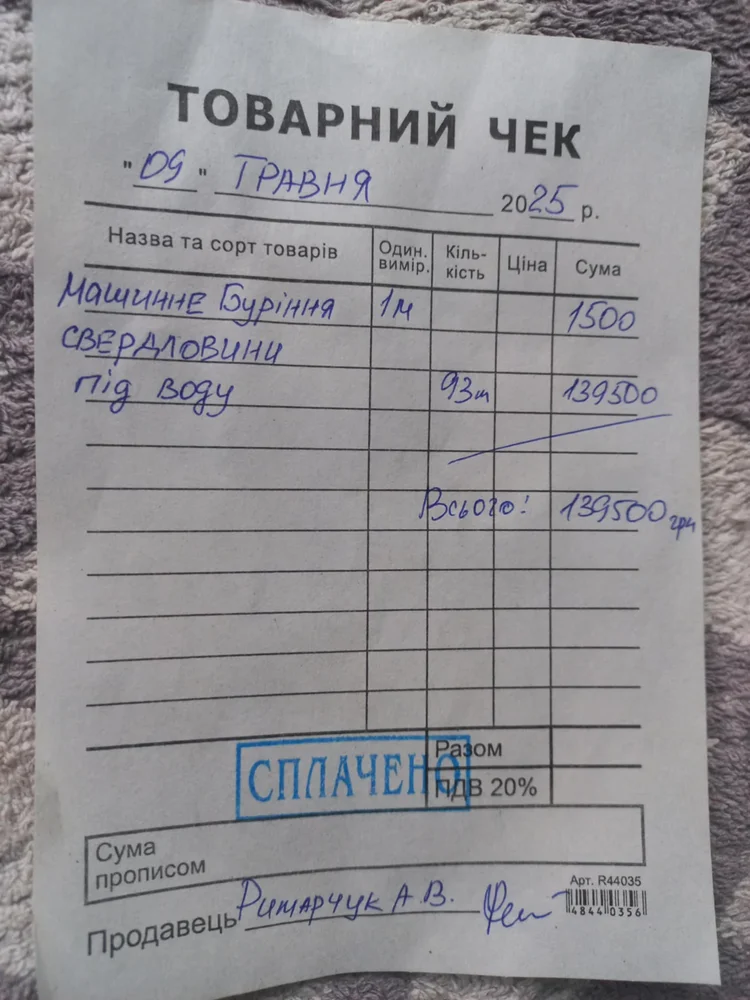 ТОВАРНИЙ ЧЕК
"09" ТРАВНЯ 2025 р.
Назва та сорт товарів Один. вимір. Кіль-кість Ціна Сума
Машинне Буріння 1м 1500
СВЕРДЛОВИНИ
під воду 93м 139500
Всього: 139500 грн
Разом
СПЛАЧЕНО
ПДВ 20%
Сума прописом
Арт. R44035
4844 0356
Продавець Римарчук А.В.